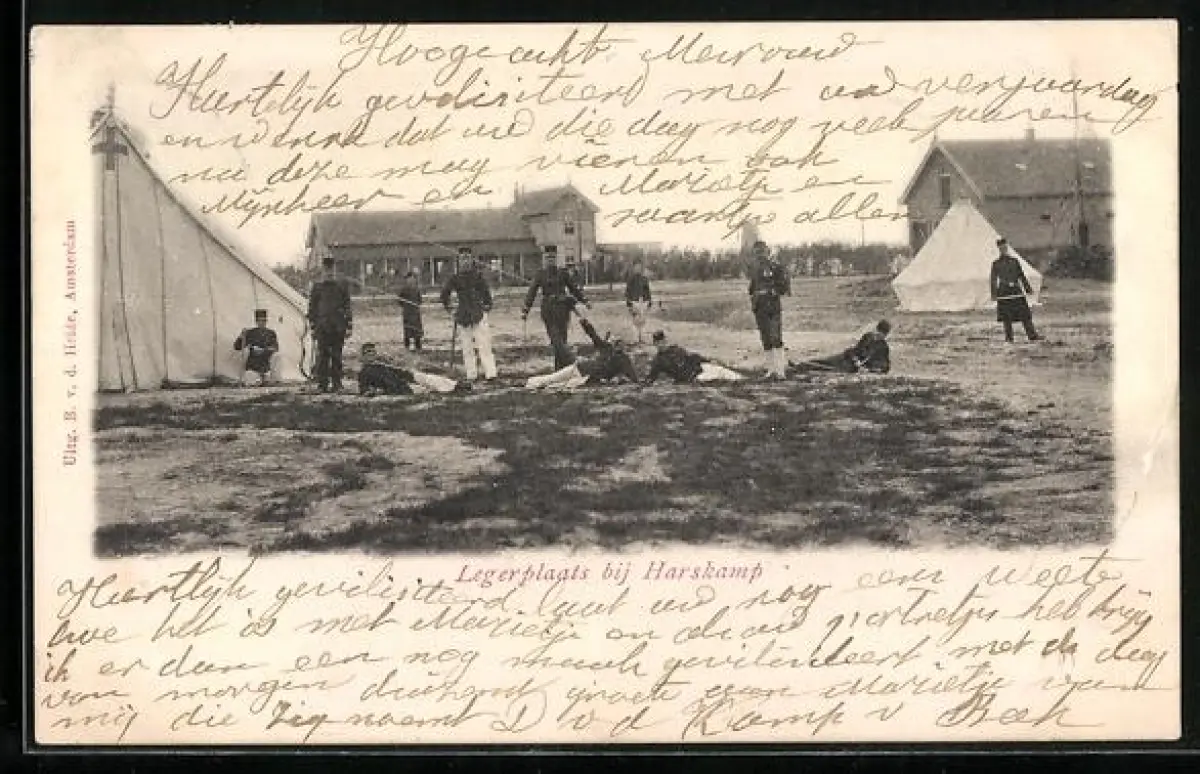 Hooge acht Mevrouw
Hartelijk gevilisiteerd met uw verjaardag
en wensch dat uw die dag nog veele jaren
na deze mag vieren ook
Mijnheer en Marietje en
allen
Uitg. B. v. d. Heide, Amsterdam
Legerplaats bij Harskamp
Hartelijk gevilisiteerd laat uw nog een weete
hoe het is met Marietje en als uw portretjes heb krijg
ik er dan een nog maals gevilisiteert met de dag
van morgen duizent groete aan Marietje van
mij die zig noemt D v d Kamp v Beek